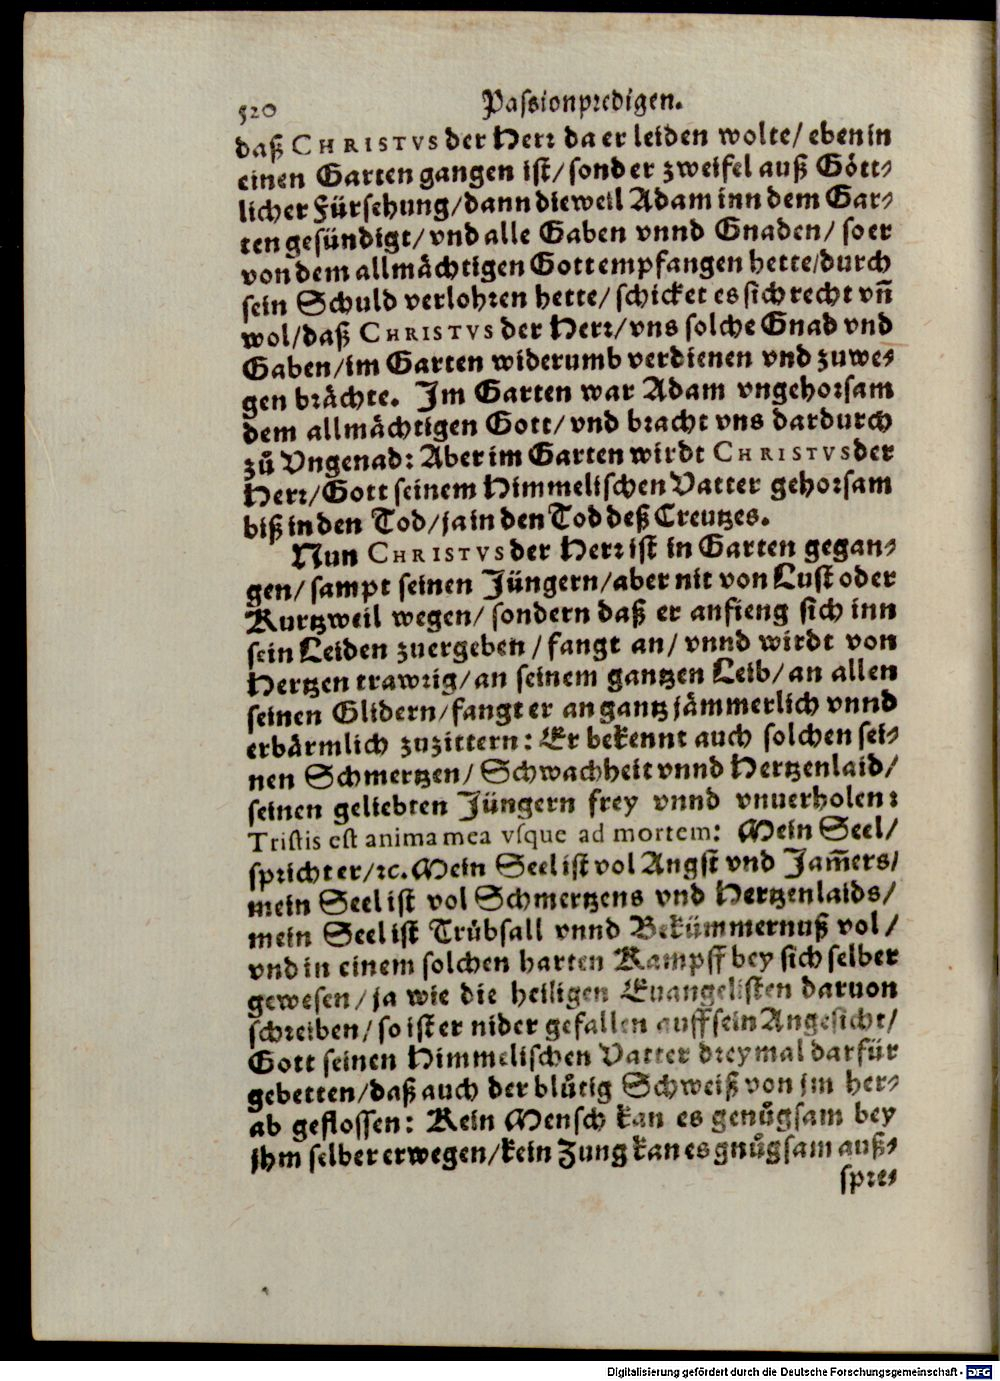 520 Passionpredigen.
daß CHRISTVS der Herr da er leiden wolte/ eben in
einen Garten gangen ist/ sonder zweifel auß Gött-
licher Fürsehung/ dann dieweil Adam inn dem Gar-
ten gesündigt/ vnd alle Gaben vnnd Gnaden/ so er
von dem allmächtigen Gott empfangen hette/ durch
sein Schuld verlohren hette/ schicket es sich recht vñ
wol/ daß CHRISTVS der Herr/ vns solche Gnad vnd
Gaben/ im Garten widerumb verdienen vnd zuwe-
gen brächte. Im Garten war Adam vngehorsam
dem allmächtigen Gott/ vnd bracht vns dardurch
zů Vngenad: Aber im Garten wirdt CHRISTVS der
Herr/ Gott seinem Himmelischen Vatter gehorsam
biß in den Tod/ ja in den Tod deß Creutzes.
Nun CHRISTVS der Herr ist in Garten gegan-
gen/ sampt seinen Jüngern/ aber nit von Lust oder
Kurtzweil wegen/ sondern daß er anfieng sich inn
sein Leiden zuergeben/ fangt an/ vnnd wirdt von
Hertzen trawrig/ an seinem gantzen Leib/ an allen
seinen Glidern/ fangt er an gantz jämmerlich vnnd
erbärmlich zuzittern: Er bekennt auch solchen sei-
nen Schmertzen/ Schwachheit vnnd Hertzenlaid/
seinen geliebten Jüngern frey vnnd vnuerholen:
Tristis est anima mea vsque ad mortem: Mein Seel/
spricht er/ ꝛc. Mein Seel ist vol Angst vnd Jam̃ers/
mein Seel ist vol Schmertzens vnd Hertzenlaids/
mein Seel ist Trůbsall vnnd Bekümmernuß vol/
vnd in einem solchen harten Kampff bey sich selber
gewesen/ ja wie die heiligen Euangelisten daruon
schreiben/ so ist er nider gefallen auff sein Angesicht/
Gott seinen Himmelischen Vatter dreymal darfür
gebetten/ daß auch der blůtig Schweiß von jm her-
ab geflossen: Kein Mensch kan es genůgsam bey
jhm selber erwegen/ kein Zung kan es gnůgsam auß-
spre-
Digitalisierung gefördert durch die Deutsche Forschungsgemeinschaft - DFG